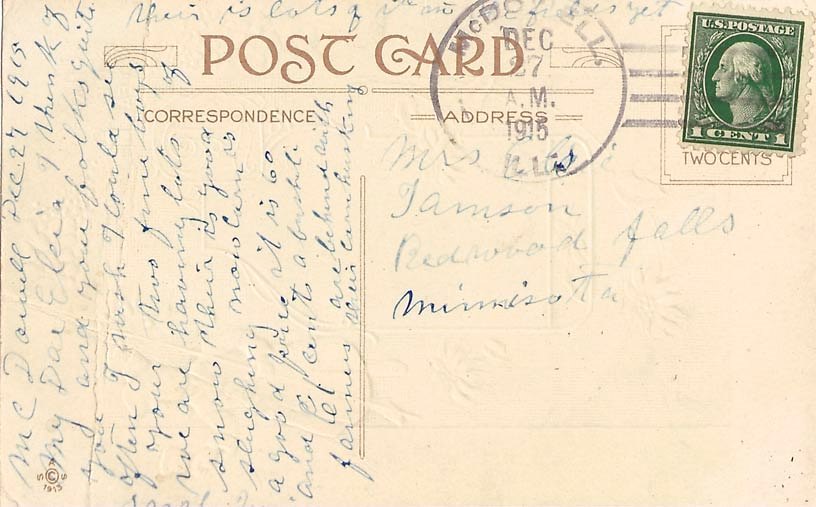 this is lots of in fields yet
POST CARD
McDOWELL
DEC
27
A.M.
1915
ILLS.
U.S. POSTAGE
1 CENT 1
TWO CENTS
CORRESPONDENCE
ADDRESS
Mrs
Tamson
Redwood falls
Minnisotta
Mc Dowell Dec 27 1915
My Dear I think of
you and your folks quite
often I wish I could see
your two fine boys
we are having lots of
snow their is good
sleighing now corn is
a good price it is 60
and 61 cents a bushel
farmers are behind with
their corn husking
S © S
1913